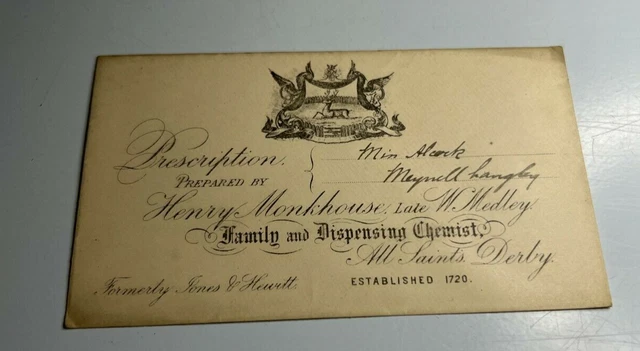 Prescription. { Miss Alcock
Meynell Langley
PREPARED BY
Henry Monkhouse, Late W. Medley.
Family and Dispensing Chemist,
All Saints, Derby.
Formerly Jones & Hewitt.
ESTABLISHED 1720.